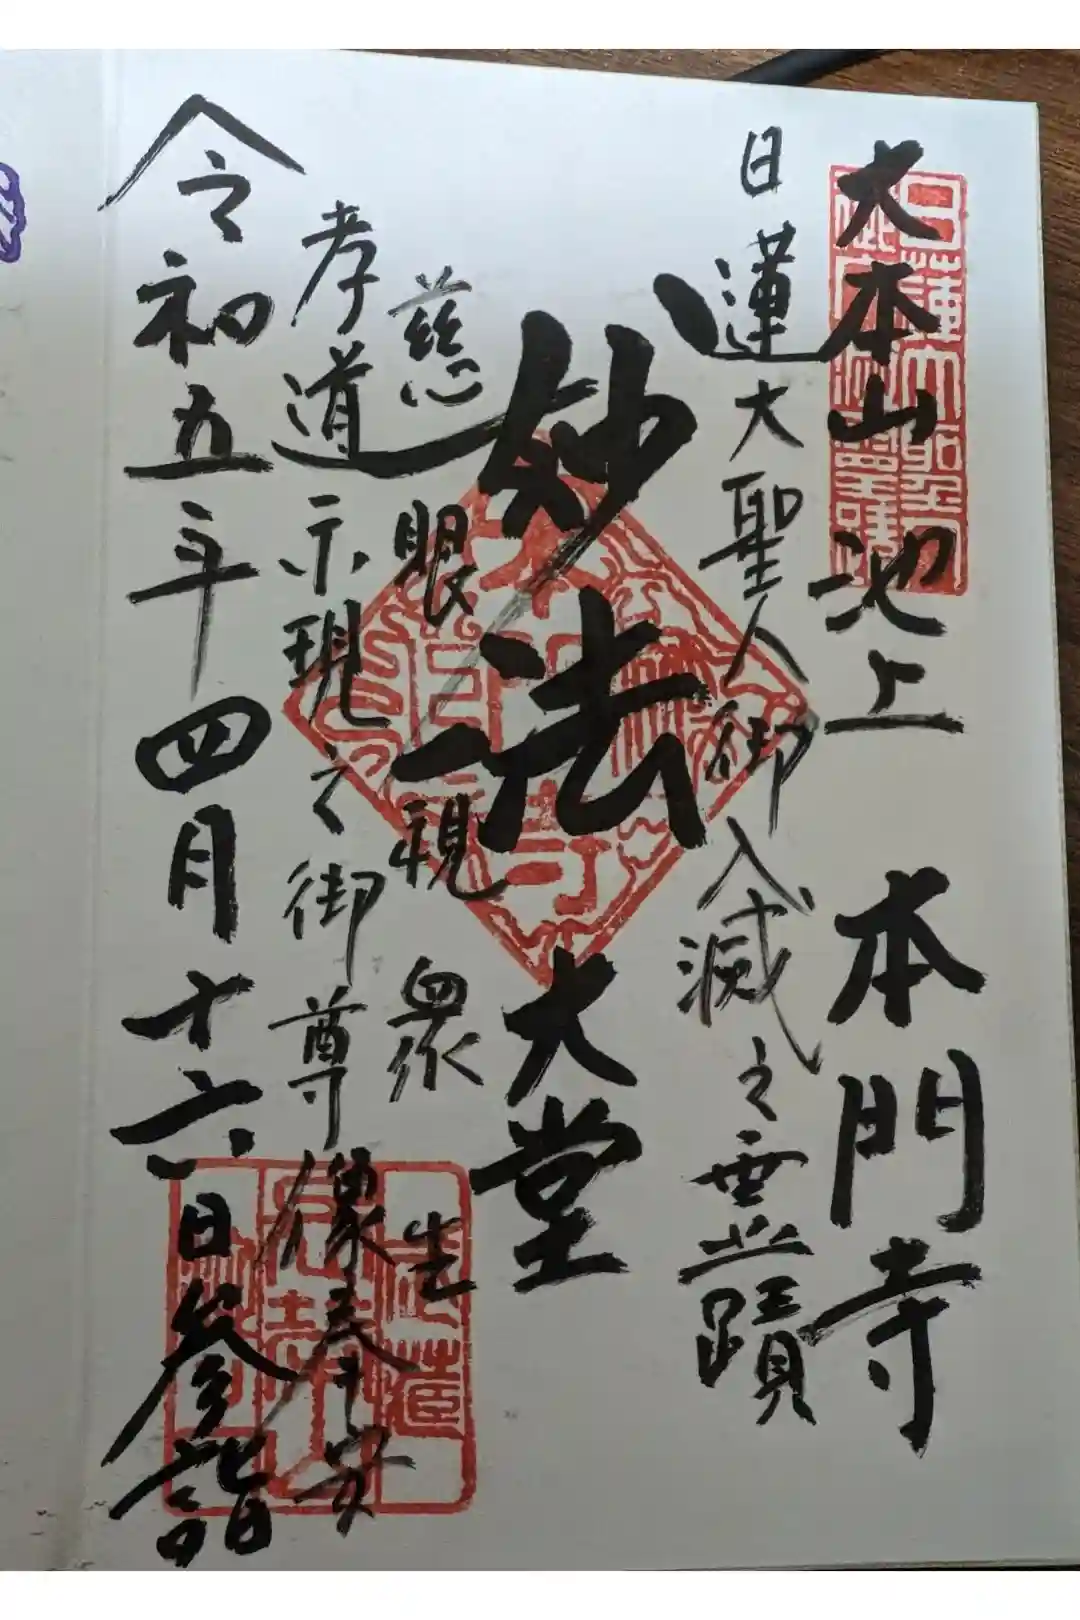 大本山池上 本門寺
日蓮大聖人御入滅之霊蹟
妙法
大堂
慈眼視衆生
孝道示現之御尊像奉安
令和五年四月十六日参詣